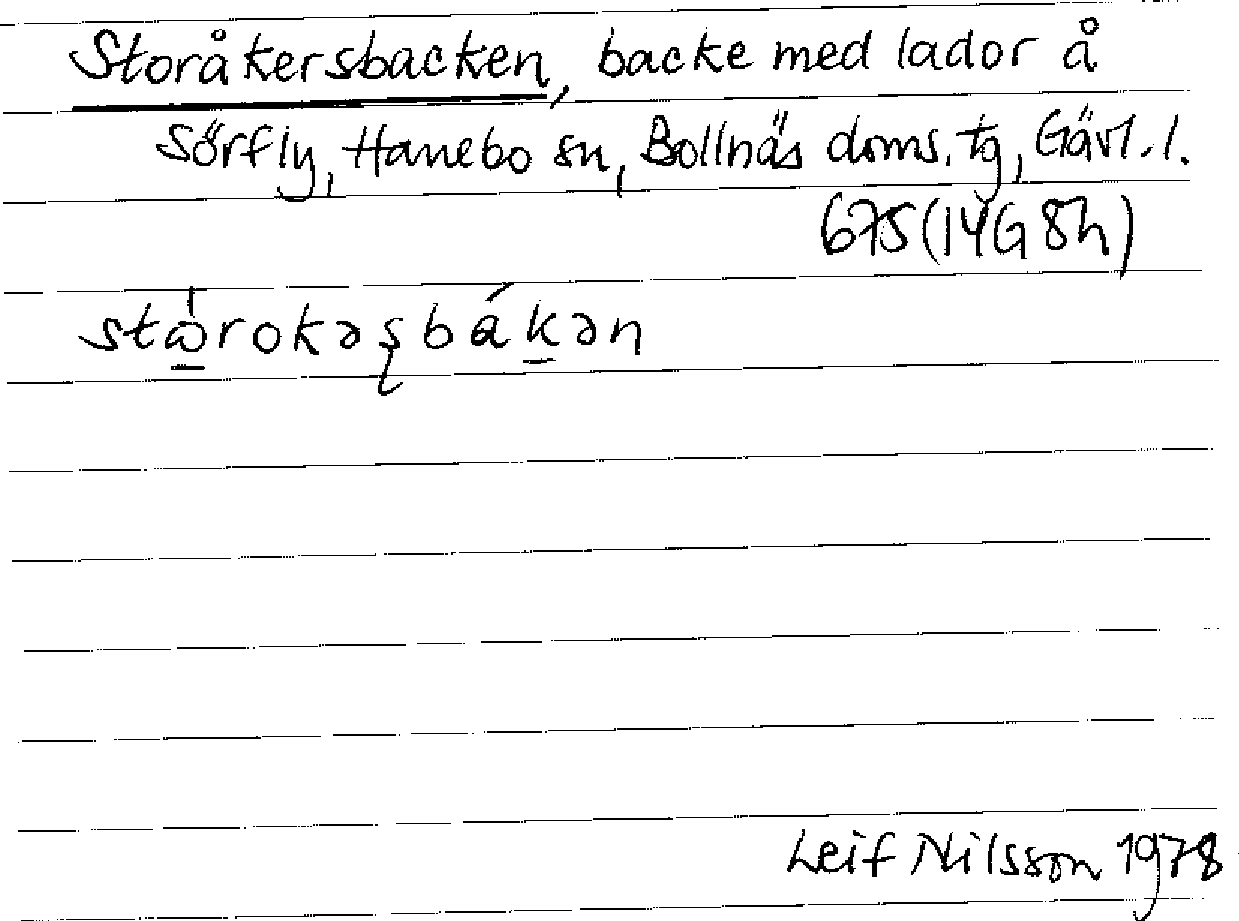 Storåkersbacken, backe med lador å
Sörfly, Hanebo sn, Bollnäs doms. tg, Gävl. l.
675 (14G 8h)
stὼ̲rokəʂbák̲ən
Leif Nilsson 1978